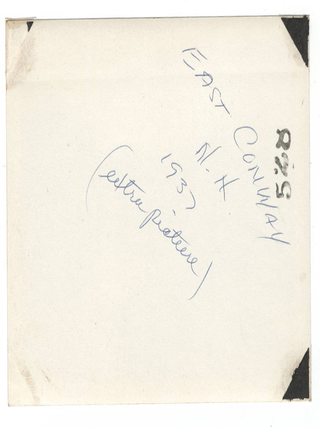 EAST CONWAY
N.H
1937
(extra picture)
568